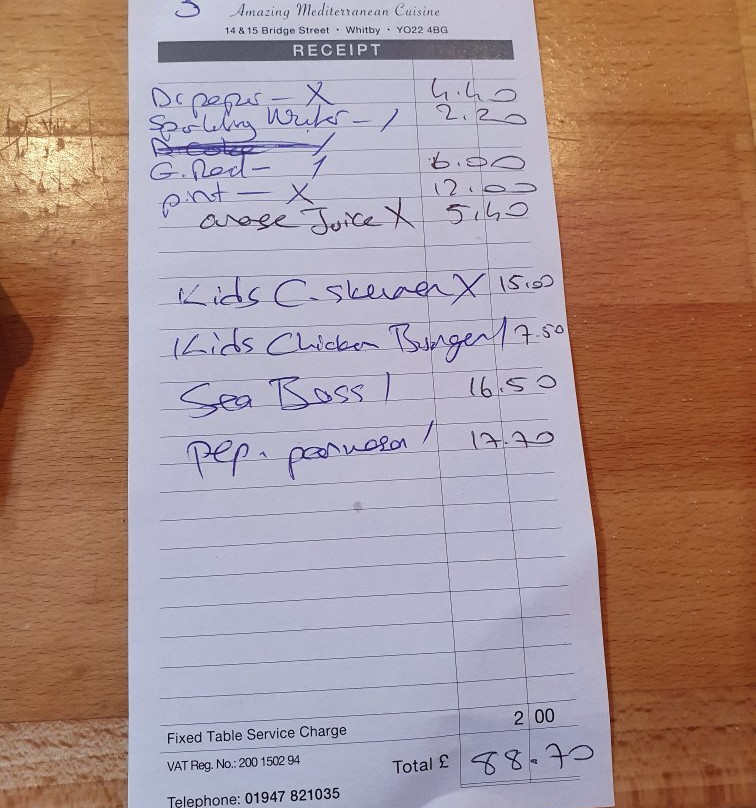 5
Amazing Mediterranean Cuisine
14 & 15 Bridge Street • Whitby • YO22 4BG
RECEIPT
Dc peper - X 4.40
Sparkling Water - / 2.20
G. Red - 1 6.00
pint - X 12.00
orage Juice X 5.40
Kids C. skewer X 15.00
Kids Chicken Burger / 7.50
Sea Bass / 16.50
pep. / 17.70
Fixed Table Service Charge 2 00
VAT Reg. No.: 200 1502 94 Total £ 88.70
Telephone: 01947 821035